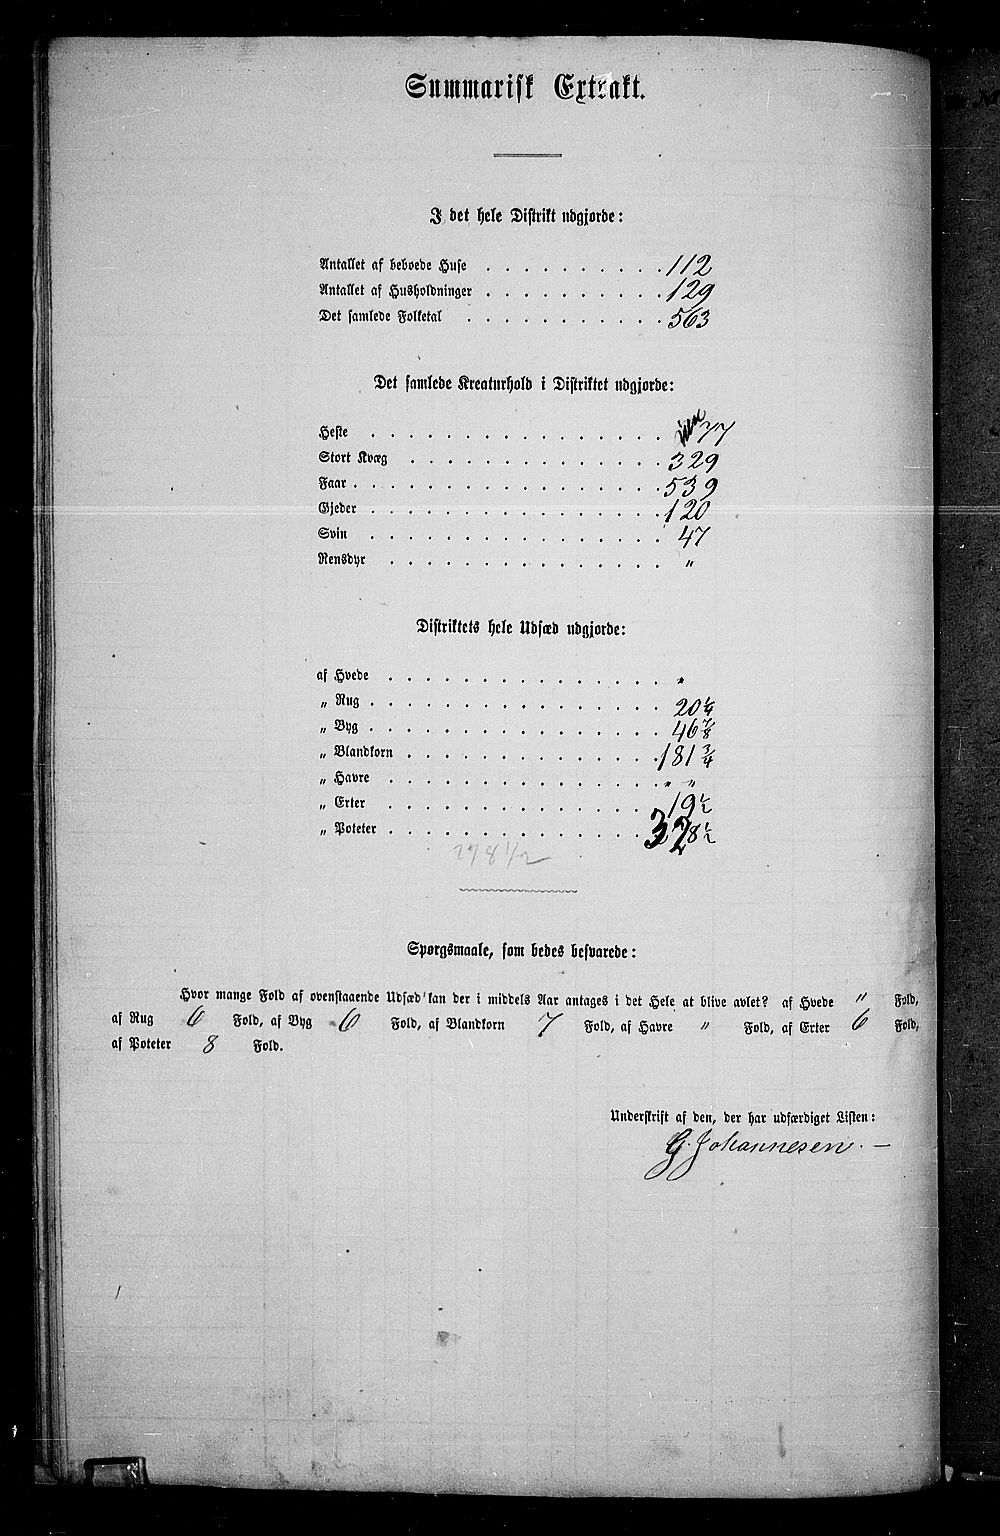 Summarisk Extrakt.
I det hele Distrikt udgjorde:
Antallet af beboede Huse . . . . . . . . . . 112
Antallet af Husholdninger . . . . . . . . . . 129
Det samlede Folketal . . . . . . . . . . . 563
Det samlede Kreaturhold i Distriktet udgjorde:
Heste . . . . . . . . . . . . . . . . 77
Stort Kvæg . . . . . . . . . . . . . . 329
Faar . . . . . . . . . . . . . . . . . 539
Gjeder . . . . . . . . . . . . . . . . 120
Svin . . . . . . . . . . . . . . . . 47
Rensdyr . . . . . . . . . . . . . . . "
Distriktets hele Udsæd udgjorde:
af Hvede . . . . . . . . . . . . . . . "
„ Rug . . . . . . . . . . . . . . . . 20 1/4
„ Byg . . . . . . . . . . . . . . . . 46 7/8
„ Blandkorn . . . . . . . . . . . . . . 181 3/4
„ Havre . . . . . . . . . . . . . . . " "
„ Erter . . . . . . . . . . . . . . . 19 1/2
„ Poteter . . . . . . . . . . . . . . 328 1/2
278 1/2
Spørgsmaale, som bedes besvarede:
Hvor mange Fold af ovenstaaende Udsæd kan der i middels Aar antages i det Hele at blive avlet? af Hvede " Fold,
af Rug 6 Fold, af Byg 6 Fold, af Blandkorn 7 Fold, af Havre " Fold, af Erter 6 Fold,
af Poteter 8 Fold.
Underskrift af den, der har udfærdiget Listen:
G. Johannesen. —